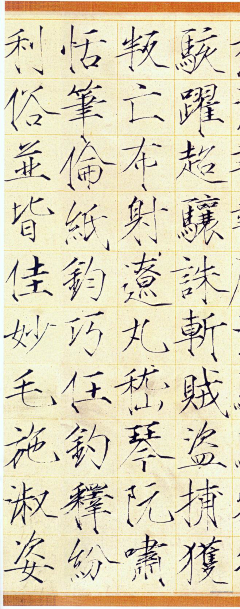 駭躍超驤誅斬賊盜捕獲
叛亡布射遼丸嵇琴阮嘯
恬筆倫紙鈞巧任釣釋紛
利俗並皆佳妙毛施淑姿